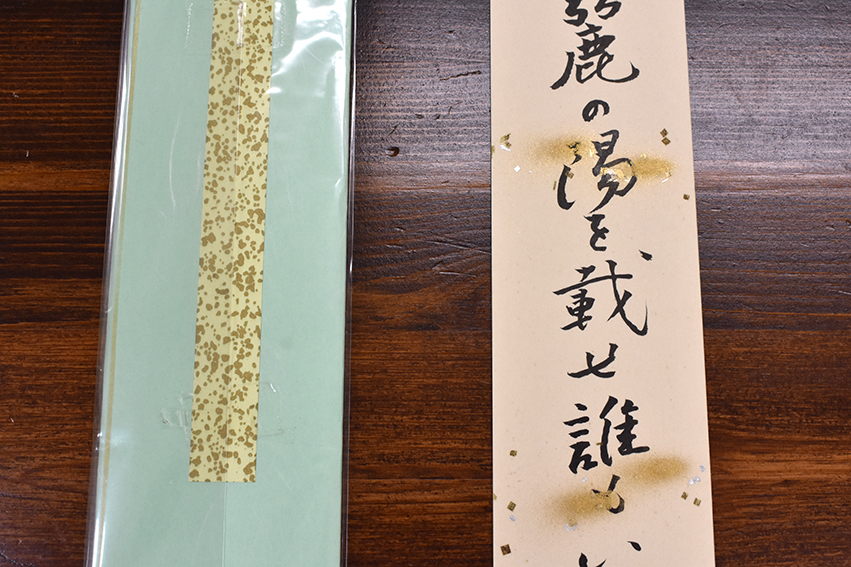 鹿の湯を載せ誰も